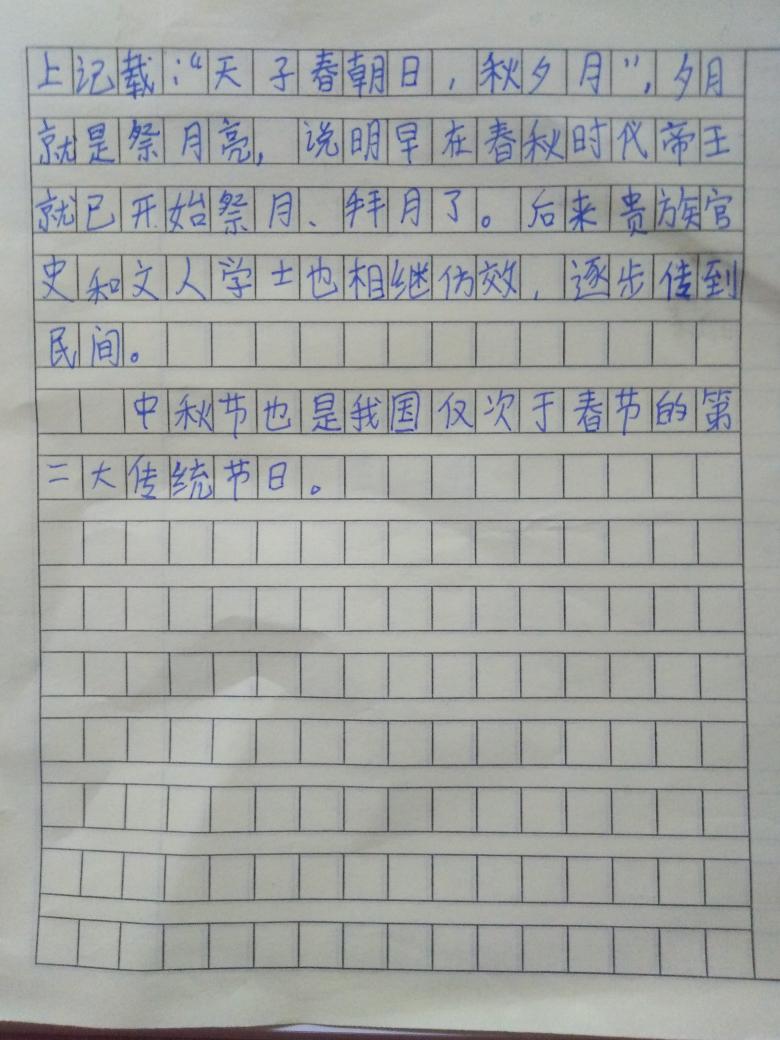 上记载:“天子春朝日,秋夕月”,夕月
就是祭月亮,说明早在春秋时代帝王
就已开始祭月、拜月了。后来贵族官
史和文人学士也相继仿效,逐步传到
民间。
中秋节也是我国仅次于春节的第
二大传统节日。